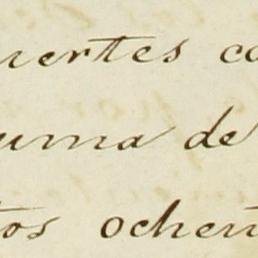 uertes co
uma de
tos ochen